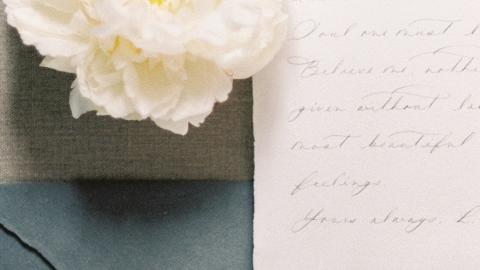 Soul one must
Believe me, nothi
given without lo
most beautiful
feelings
Yours always, L.